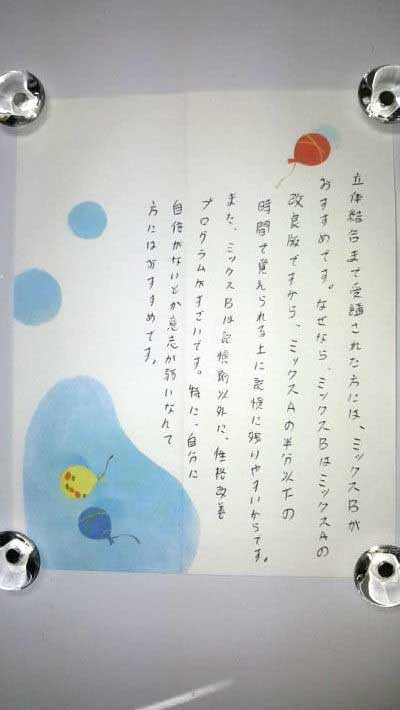 立体結合まで受講された方には、ミックスBが
おすすめです。なぜなら、ミックスBはミックスAの
改良版ですから、ミックスAの半分以下の
時間で覚えられる上に記憶に残りやすいからです。
また、ミックスBは記憶術以外に、性格改善
プログラムがすごいです。特に、自分に
自信がないとか意志が弱いなんて
方にはおすすめです。